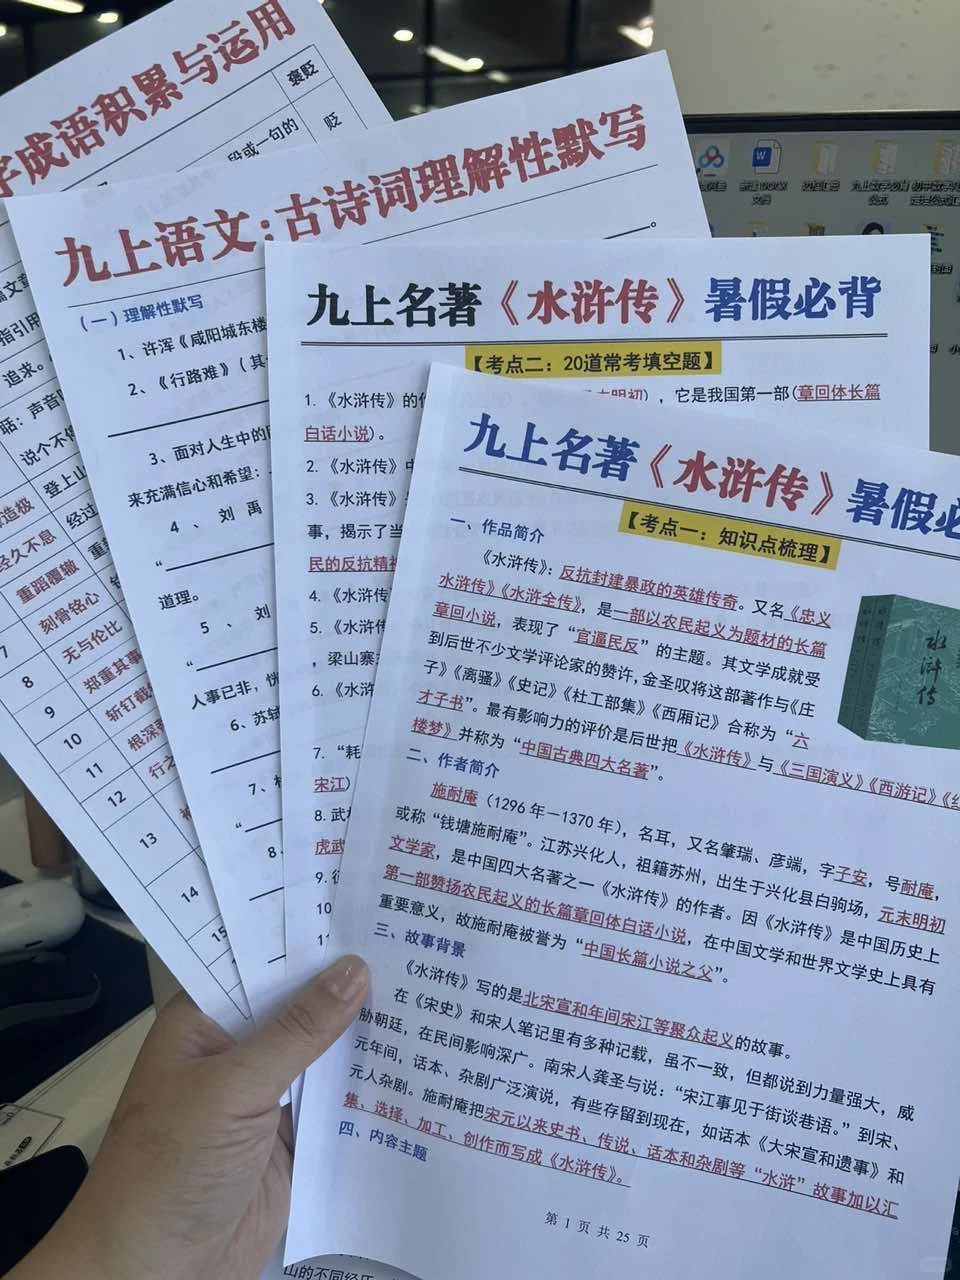 字成语积累与运用
褒贬
段或一句的
贬
九上语文：古诗词理解性默写
（一）理解性默写
1、许浑《咸阳城东楼
2、《行路难》（其一
3、面对人生中的
来充满信心和希望：
4、刘禹
道理。
5、刘
人事已非，恍
6、苏轼
7、
8、
指引用
追求。
话：声音
说个不停
登上山
造极
经过
经久不息
重蹈覆辙
刻骨铭心
7
无与伦比
8
郑重其事
9
斩钉截
10
根深
11
行之
12
13
14
15
九上名著《水浒传》暑假必背
【考点二：20道常考填空题】
1.《水浒传》的作
明初），它是我国第一部(章回体长篇
白话小说)。
2.《水浒传》中
3.《水浒传》
事，揭示了当
民的反抗精神
4.《水浒传
5.《水浒传
，梁山寨
6.《水浒
7.“耗
宋江）
8.武
虎武
9.
10
11
九上名著《水浒传》暑假必
【考点一：知识点梳理】
一、作品简介
《水浒传》：反抗封建暴政的英雄传奇。又名《忠义
水浒传》《水浒全传》，是一部以农民起义为题材的长篇
章回小说，表现了“官逼民反”的主题。其文学成就受
到后世不少文学评论家的赞许，金圣叹将这部著作与《庄
子》《离骚》《史记》《杜工部集》《西厢记》合称为“六
才子书”。最有影响力的评价是后世把《水浒传》与《三国演义》《西游记》《红
楼梦》并称为“中国古典四大名著”。
水浒传
二、作者简介
施耐庵（1296年－1370年），名耳，又名肇瑞、彦端，字子安，号耐庵，
或称“钱塘施耐庵”。江苏兴化人，祖籍苏州，出生于兴化县白驹场，元末明初
文学家，是中国四大名著之一《水浒传》的作者。因《水浒传》是中国历史上
第一部赞扬农民起义的长篇章回体白话小说，在中国文学和世界文学史上具有
重要意义，故施耐庵被誉为“中国长篇小说之父”。
三、故事背景
《水浒传》写的是北宋宣和年间宋江等聚众起义的故事。
在《宋史》和宋人笔记里有多种记载，虽不一致，但都说到力量强大，威
胁朝廷，在民间影响深广。南宋人龚圣与说：“宋江事见于街谈巷语。”到宋、
元年间，话本、杂剧广泛演说，有些存留到现在，如话本《大宋宣和遗事》和
元人杂剧。施耐庵把宋元以来史书、传说、话本和杂剧等“水浒”故事加以汇
集、选择、加工、创作而写成《水浒传》。
四、内容主题
第 1 页 共 25 页